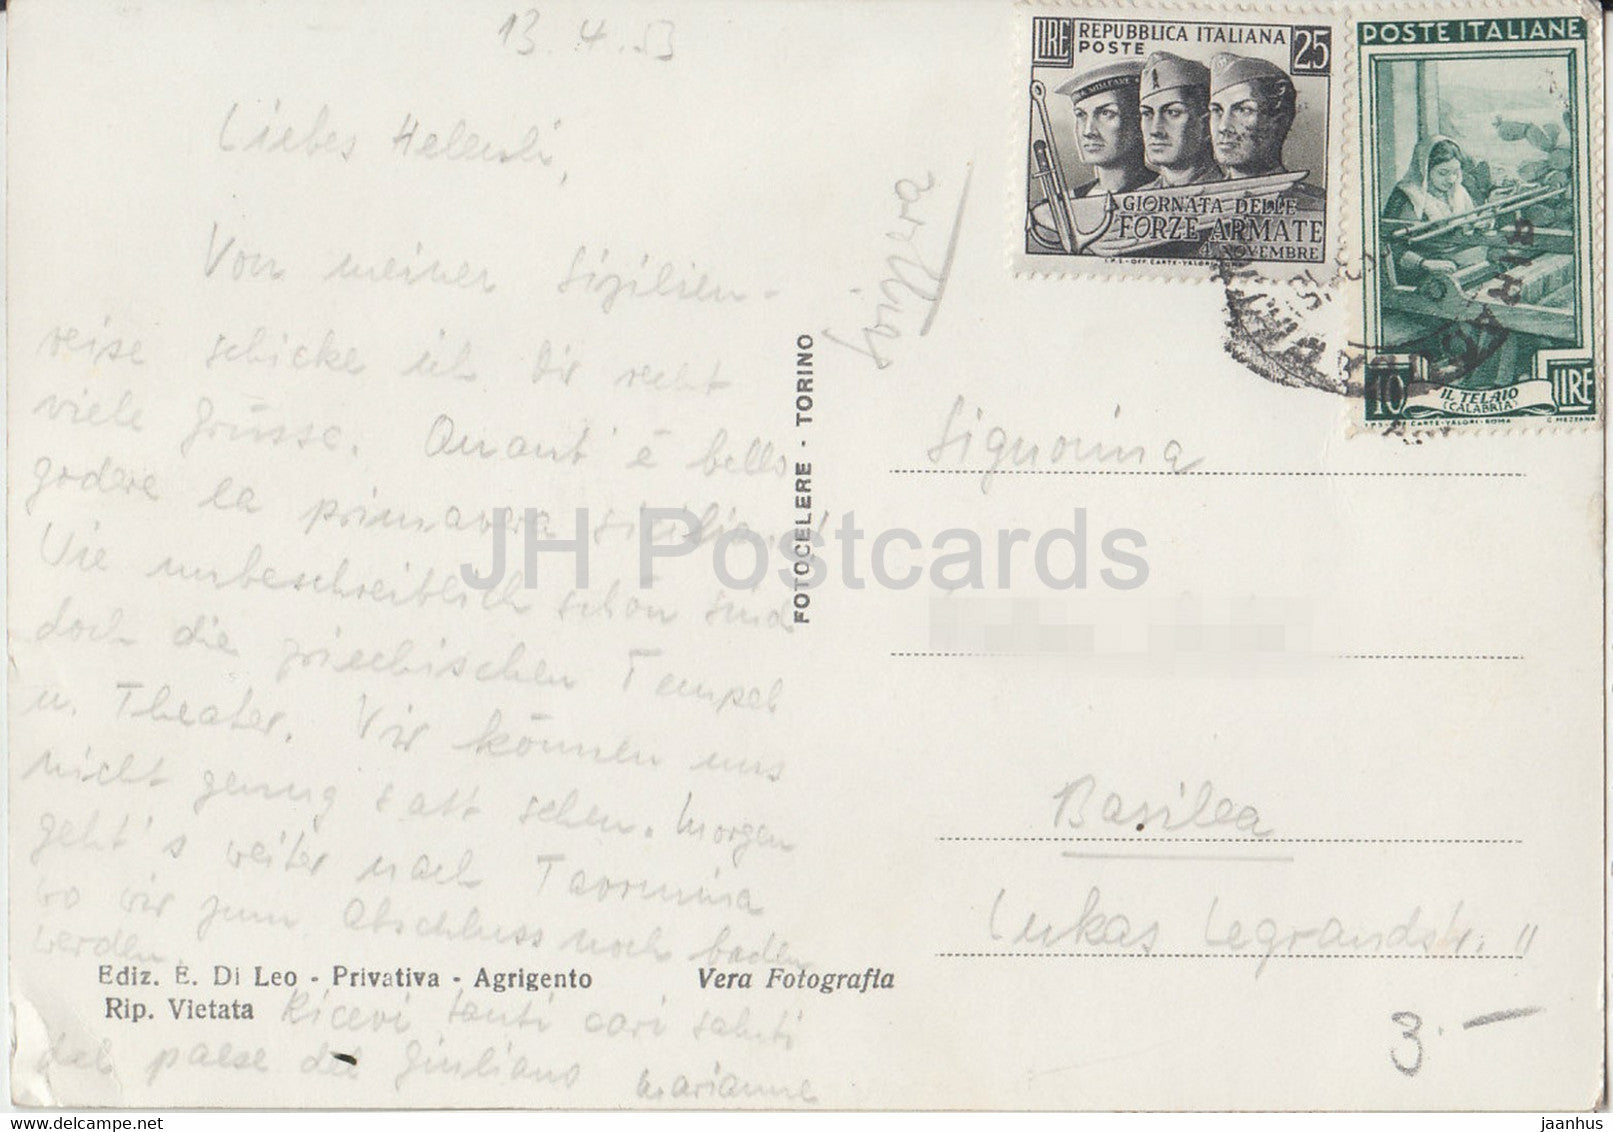 13.4.53
Liebes Helenli,
Von meiner Sizilien-
reise schicke ich Dir recht
viele Grüsse. Quant' è bello
godere la primavera siciliana!
Wie unbeschreiblich schön sind
doch die griechischen Tempel
u. Theater. Wir können uns
nicht genug satt sehen. Morgen
geht's weiter nach Taormina
wo wir zum Abschluss noch baden
werden.
Ricevi tanti cari saluti
dal paese del Giuliano Marianne
Ediz. E. Di Leo - Privativa - Agrigento
Rip. Vietata
Vera Fotografia
FOTOCELERE - TORINO
REPUBBLICA ITALIANA
POSTE
LIRE 25
GIORNATA DELLE
FORZE ARMATE
4 NOVEMBRE
I.P.S.-OFF.CARTE-VALORI-ROMA
POSTE ITALIANE
10 LIRE
IL TELAIO
(CALABRIA)
I.P.S.-OFF.CARTE-VALORI-ROMA
C. MEZZANA
Signorina
Basilea
Lukas Legrandstr. 11
3.-
JH Postcards
www.delcampe.net
jaanhus